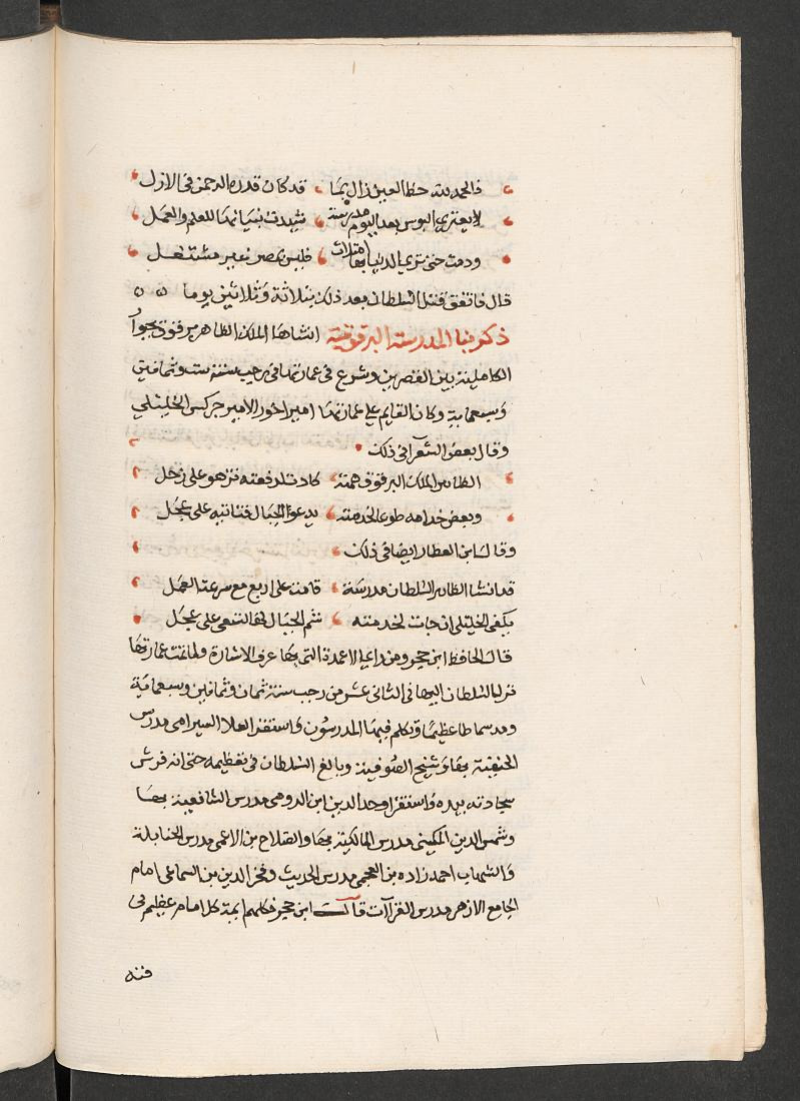 فالحمد لله حظ العين زال بها قد كان قدره الرحمن فى الازل
لا يعترى البوس بعد اليوم مدرسة شيدت بنيانها للعلم والعمل
ودمت حتى ترى الدنيا بها امتلات فليس بمصر غير مشتغل
قال فاتفق قتل السلطان بعد ذلك بثلاثة وثلاثين يوما
ذكر بنا المدرسة البرقوقية انشاها الملك الظاهر برقوق بجوار
الكاملية بين القصرين وشرع فى عمارتها فى رجب سنة ست وثمانين
وسبعماية وكان القايم على عمارتها امير اخور الامير جركس الخليلى
وقال بعض الشعرآ فى ذلك
الظاهر الملك البرقوق همته كادت لرفعته تزهو على زحل
وبعض خدامه طوعا لخدمته يدعو الجبال فتاتيه على عجل
وقال ابن العطار ايضا فى ذلك
قد انشا الظاهر السلطان مدرسة فاقت على اربع مع سرعة العمل
يكفى الخليلى ان جات لخدمته شم الجبال لها تسعى على عجل
قال الحافظ ابن حجر ومن راى الاعمدة التى بها عرف الاشارة ولما تمت عمارتها
نزل السلطان اليها فى الثانى عشر من رجب سنة ثمان وثمانين وسبعماية
ومد سماطا عظيما وتكلم فيها المدرسون واستقر العلا السيرامى مدرس
الحنفية بها وشيخ الصوفية وبالغ السلطان فى تعظيمه حتى انه فرش
سجادته بيده واستقر اوحد الدين ابن الرومى مدرس الشافعية بها
وشمس الدين المكينى مدرس المالكية بها والصلاح بن الاعمى مدرس الحنابلة
والشهاب احمد زاده بن العجمى مدرس الحديث وفخر الدين بن السماعى امام
الجامع الازهر مدرس القراآت قال ابن حجر فكلهم ايمة كل امام عظيم فى
فنه